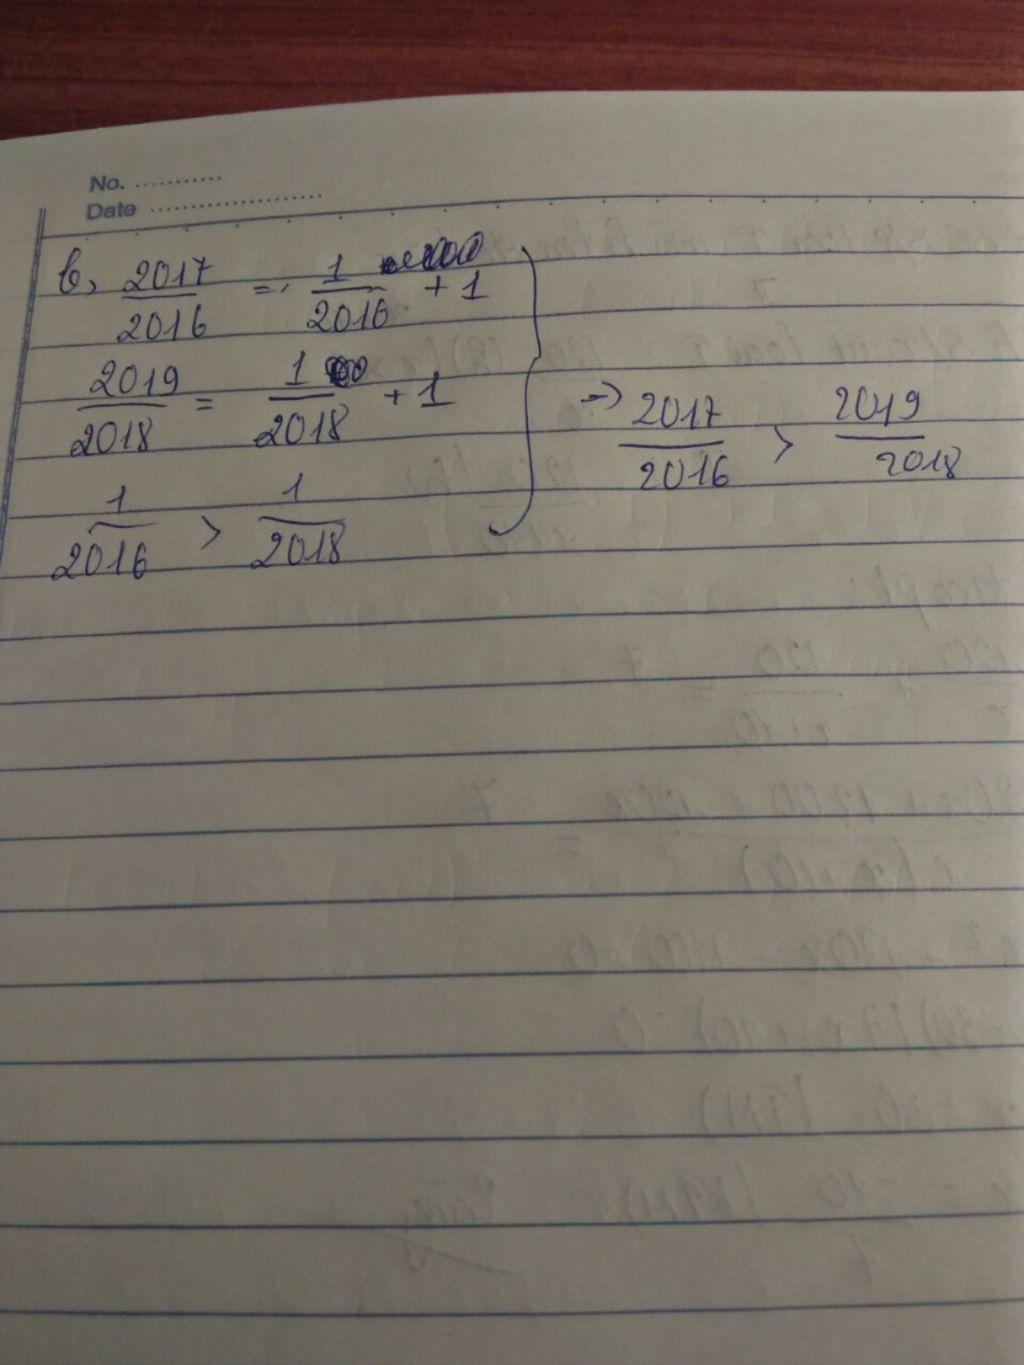 No. ...........
Date ......................
b, 2017/2016 = 1/2016 + 1
2019/2018 = 1/2018 + 1
1/2016 > 1/2018
→ 2017/2016 > 2019/2018